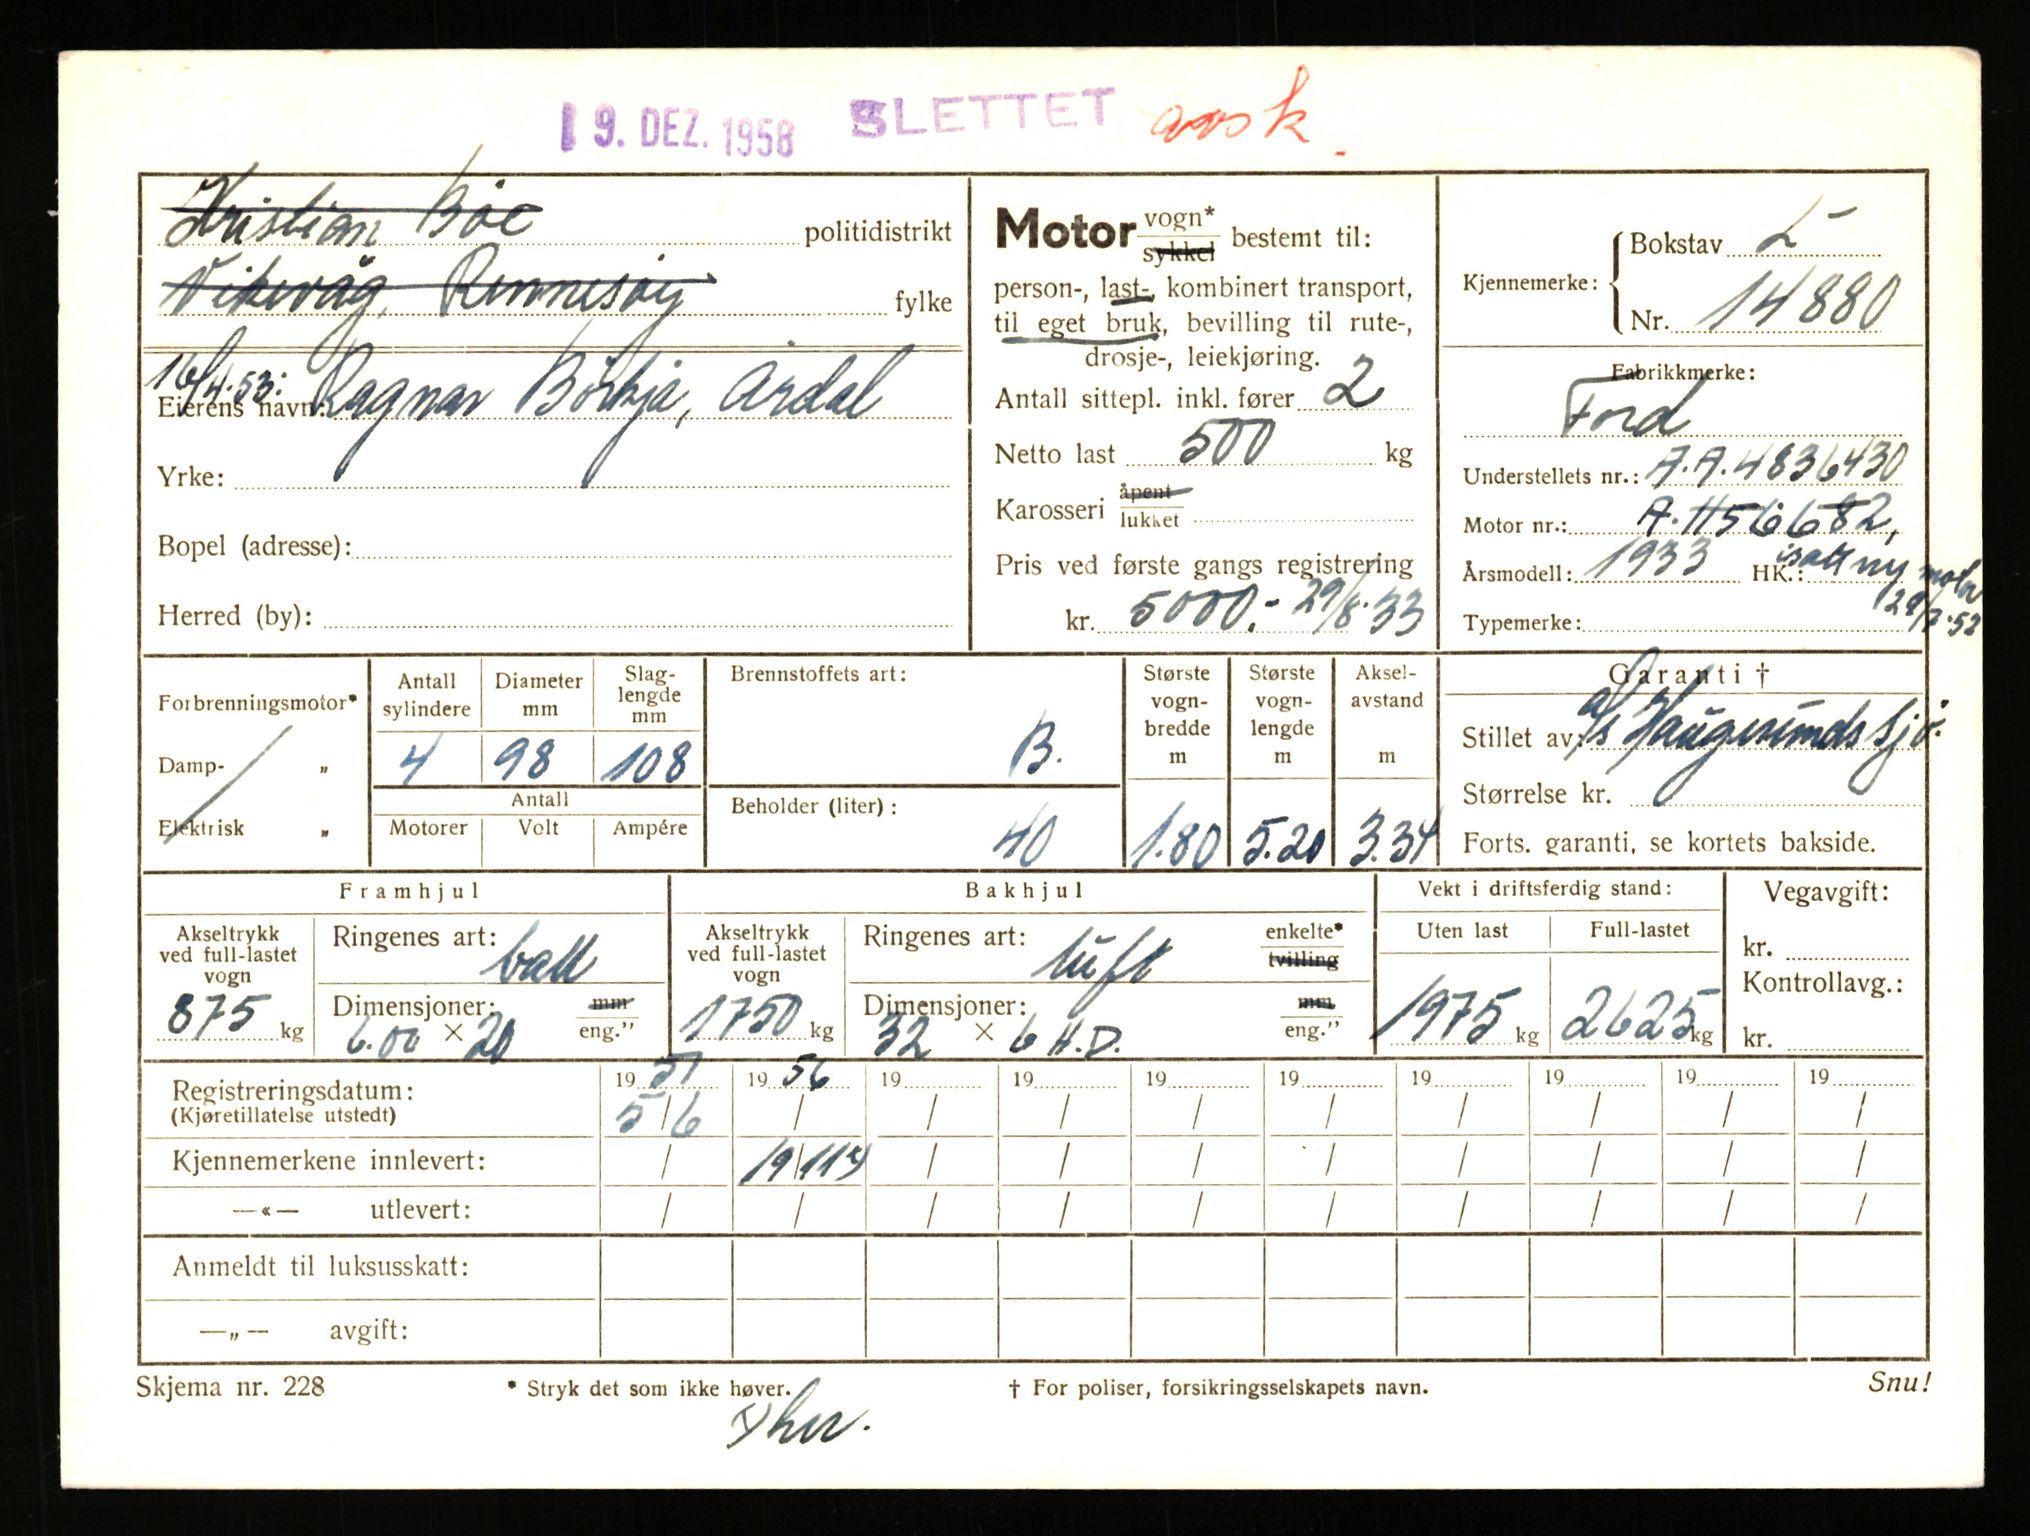 19. DEZ. 1958 SLETTET avsk.
Kristian Bøe politidistrikt
Vikevåg, Rennesøy fylke
16/4.53:
Eierens navn: Ragnar Børkja, Årdal
Yrke:
Bopel (adresse):
Herred (by):
Motor vogn* sykkel bestemt til:
person-, last-, kombinert transport,
til eget bruk, bevilling til rute-,
drosje-, leiekjøring.
Antall sittepl. inkl. fører 2
Netto last 500 kg
Karosseri åpent lukket
Pris ved første gangs registrering
kr. 5000.- 29/8.33
Kjennemerke: Bokstav L
Nr. 14880
Fabrikkmerke:
Ford
Understellets nr.: A.A.4836430
Motor nr.: A.H56682,
Årsmodell: 1933 HK.: isatt ny motor
Typemerke: 29/7.52
Forbrenningsmotor*
Damp- „
Elektrisk „
Antall sylindere 4
Diameter mm 98
Slag-lengde mm 108
Antall
Motorer Volt Ampére
Brennstoffets art: B.
Beholder (liter): 40
Største vogn-bredde m 1.80
Største vogn-lengde m 5.20
Aksel-avstand m 3.34
Garanti †
Stillet av: A/s Haugesunds Sjø.
Størrelse kr.
Forts. garanti, se kortets bakside.
Framhjul
Akseltrykk ved full-lastet vogn 875 kg
Ringenes art: ball
Dimensjoner: 6.00 × 20 mm eng.”
Bakhjul
Akseltrykk ved full-lastet vogn 1750 kg
Ringenes art: luft enkelte* tvilling
Dimensjoner: 32 × 6 H.D. mm eng.”
Vekt i driftsferdig stand:
Uten last Full-lastet
1975 kg 2625 kg
Vegavgift:
kr.
Kontrollavg.:
kr.
Registreringsdatum: 19 51 19 56 19 19 19 19 19 19 19 19
(Kjøretillatelse utstedt) 5/6 / / / / / / / / /
Kjennemerkene innlevert: / 19/11 / / / / / / / /
—«— utlevert: / / / / / / / / / /
Anmeldt til luksusskatt:
—„— avgift:
Skjema nr. 228 * Stryk det som ikke høver. † For poliser, forsikringsselskapets navn. Snu!